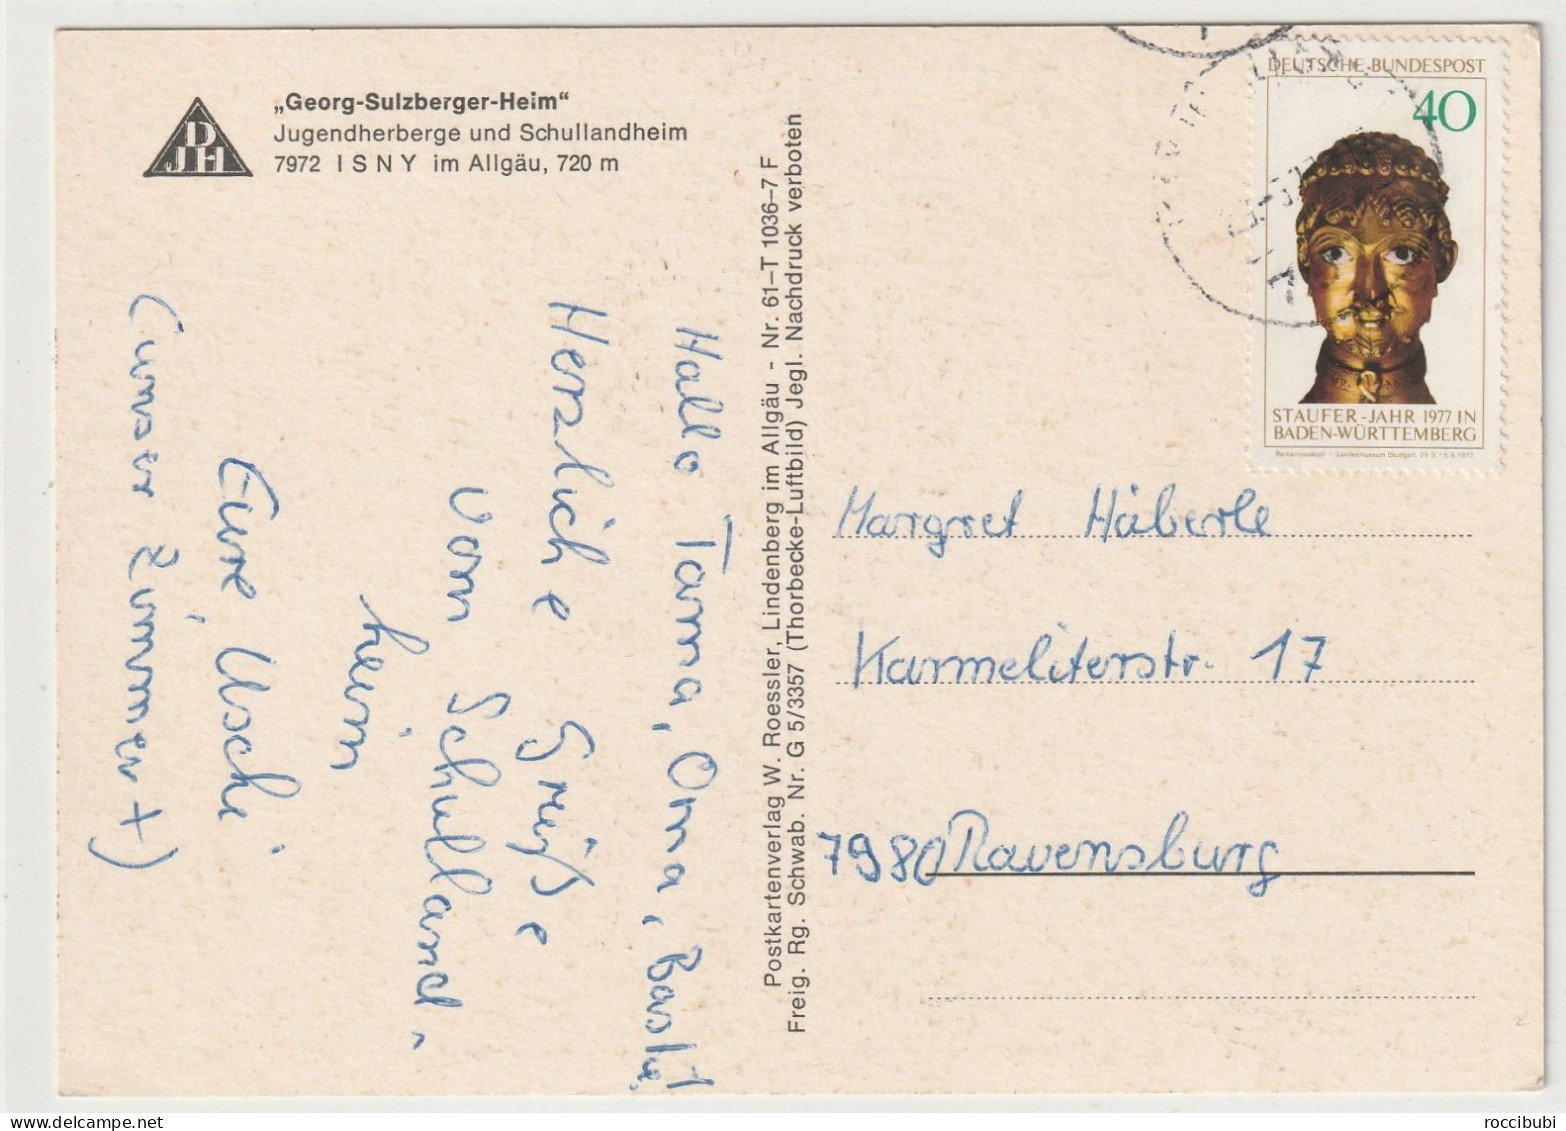 „Georg-Sulzberger-Heim“
Jugendherberge und Schullandheim
7972 ISNY im Allgäu, 720 m
DJH
Hallo Tama, Oma, Basti!
Herzliche Grüße
vom Schulland-
heim
Eure Uschi
(unser Zimmer +)
Postkartenverlag W. Roessler, Lindenberg im Allgäu - Nr. 61–T 1036–7 F
Freig. Rg. Schwab. Nr. G 5/3357 (Thorbecke-Luftbild) Jegl. Nachdruck verboten
DEUTSCHE BUNDESPOST
40
STAUFER-JAHR 1977 IN
BADEN-WÜRTTEMBERG
Barbarossakopf - Landesmuseum Stuttgart, 25.3.-5.6.1977
Margret Häberle
Karmeliterstr. 17
7980 Ravensburg
roccibubi